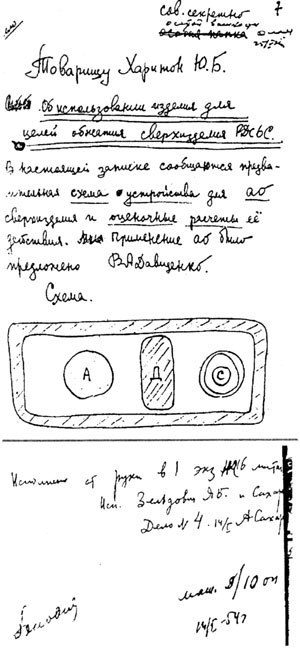 сов. секретно 7
особой важности
Особая папка
Товарищу Харитон Ю.Б.
Об использовании изделия для
целей обжатия сверхизделия РДС-6С.
В настоящей записке сообщаются предва-
рительная схема устройства для АО
сверхизделия и оценочные расчеты её
действия. Применение АО было
предложено В.А.Давиденко.
Схема.
А Д С
Исполнено от руки в 1 экз на 6 листах
Исп. Зельдович ЯБ. и Сахар
Дело № 4. 14/I АСахар
14/I-54г